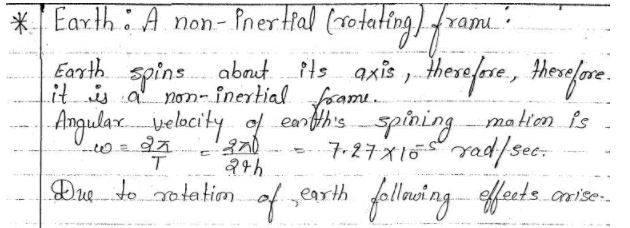 * Earth : A non-Inertial (rotating) frame :
Earth spins about its axis, therefore, therefore.
it is a non-inertial frame.
Angular velocity of earth's spining motion is
ω = 2π/T = 2π/24h = 7.27 × 10^-5 rad/sec.
Due to rotation of earth following effects arise-